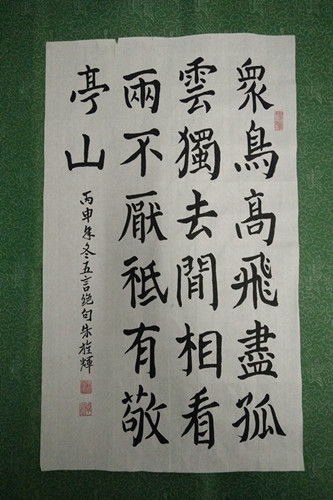 衆鳥髙飛盡孤
雲獨去閒相看
兩不厭祗有敬
亭山
丙申年冬五言绝句朱輝